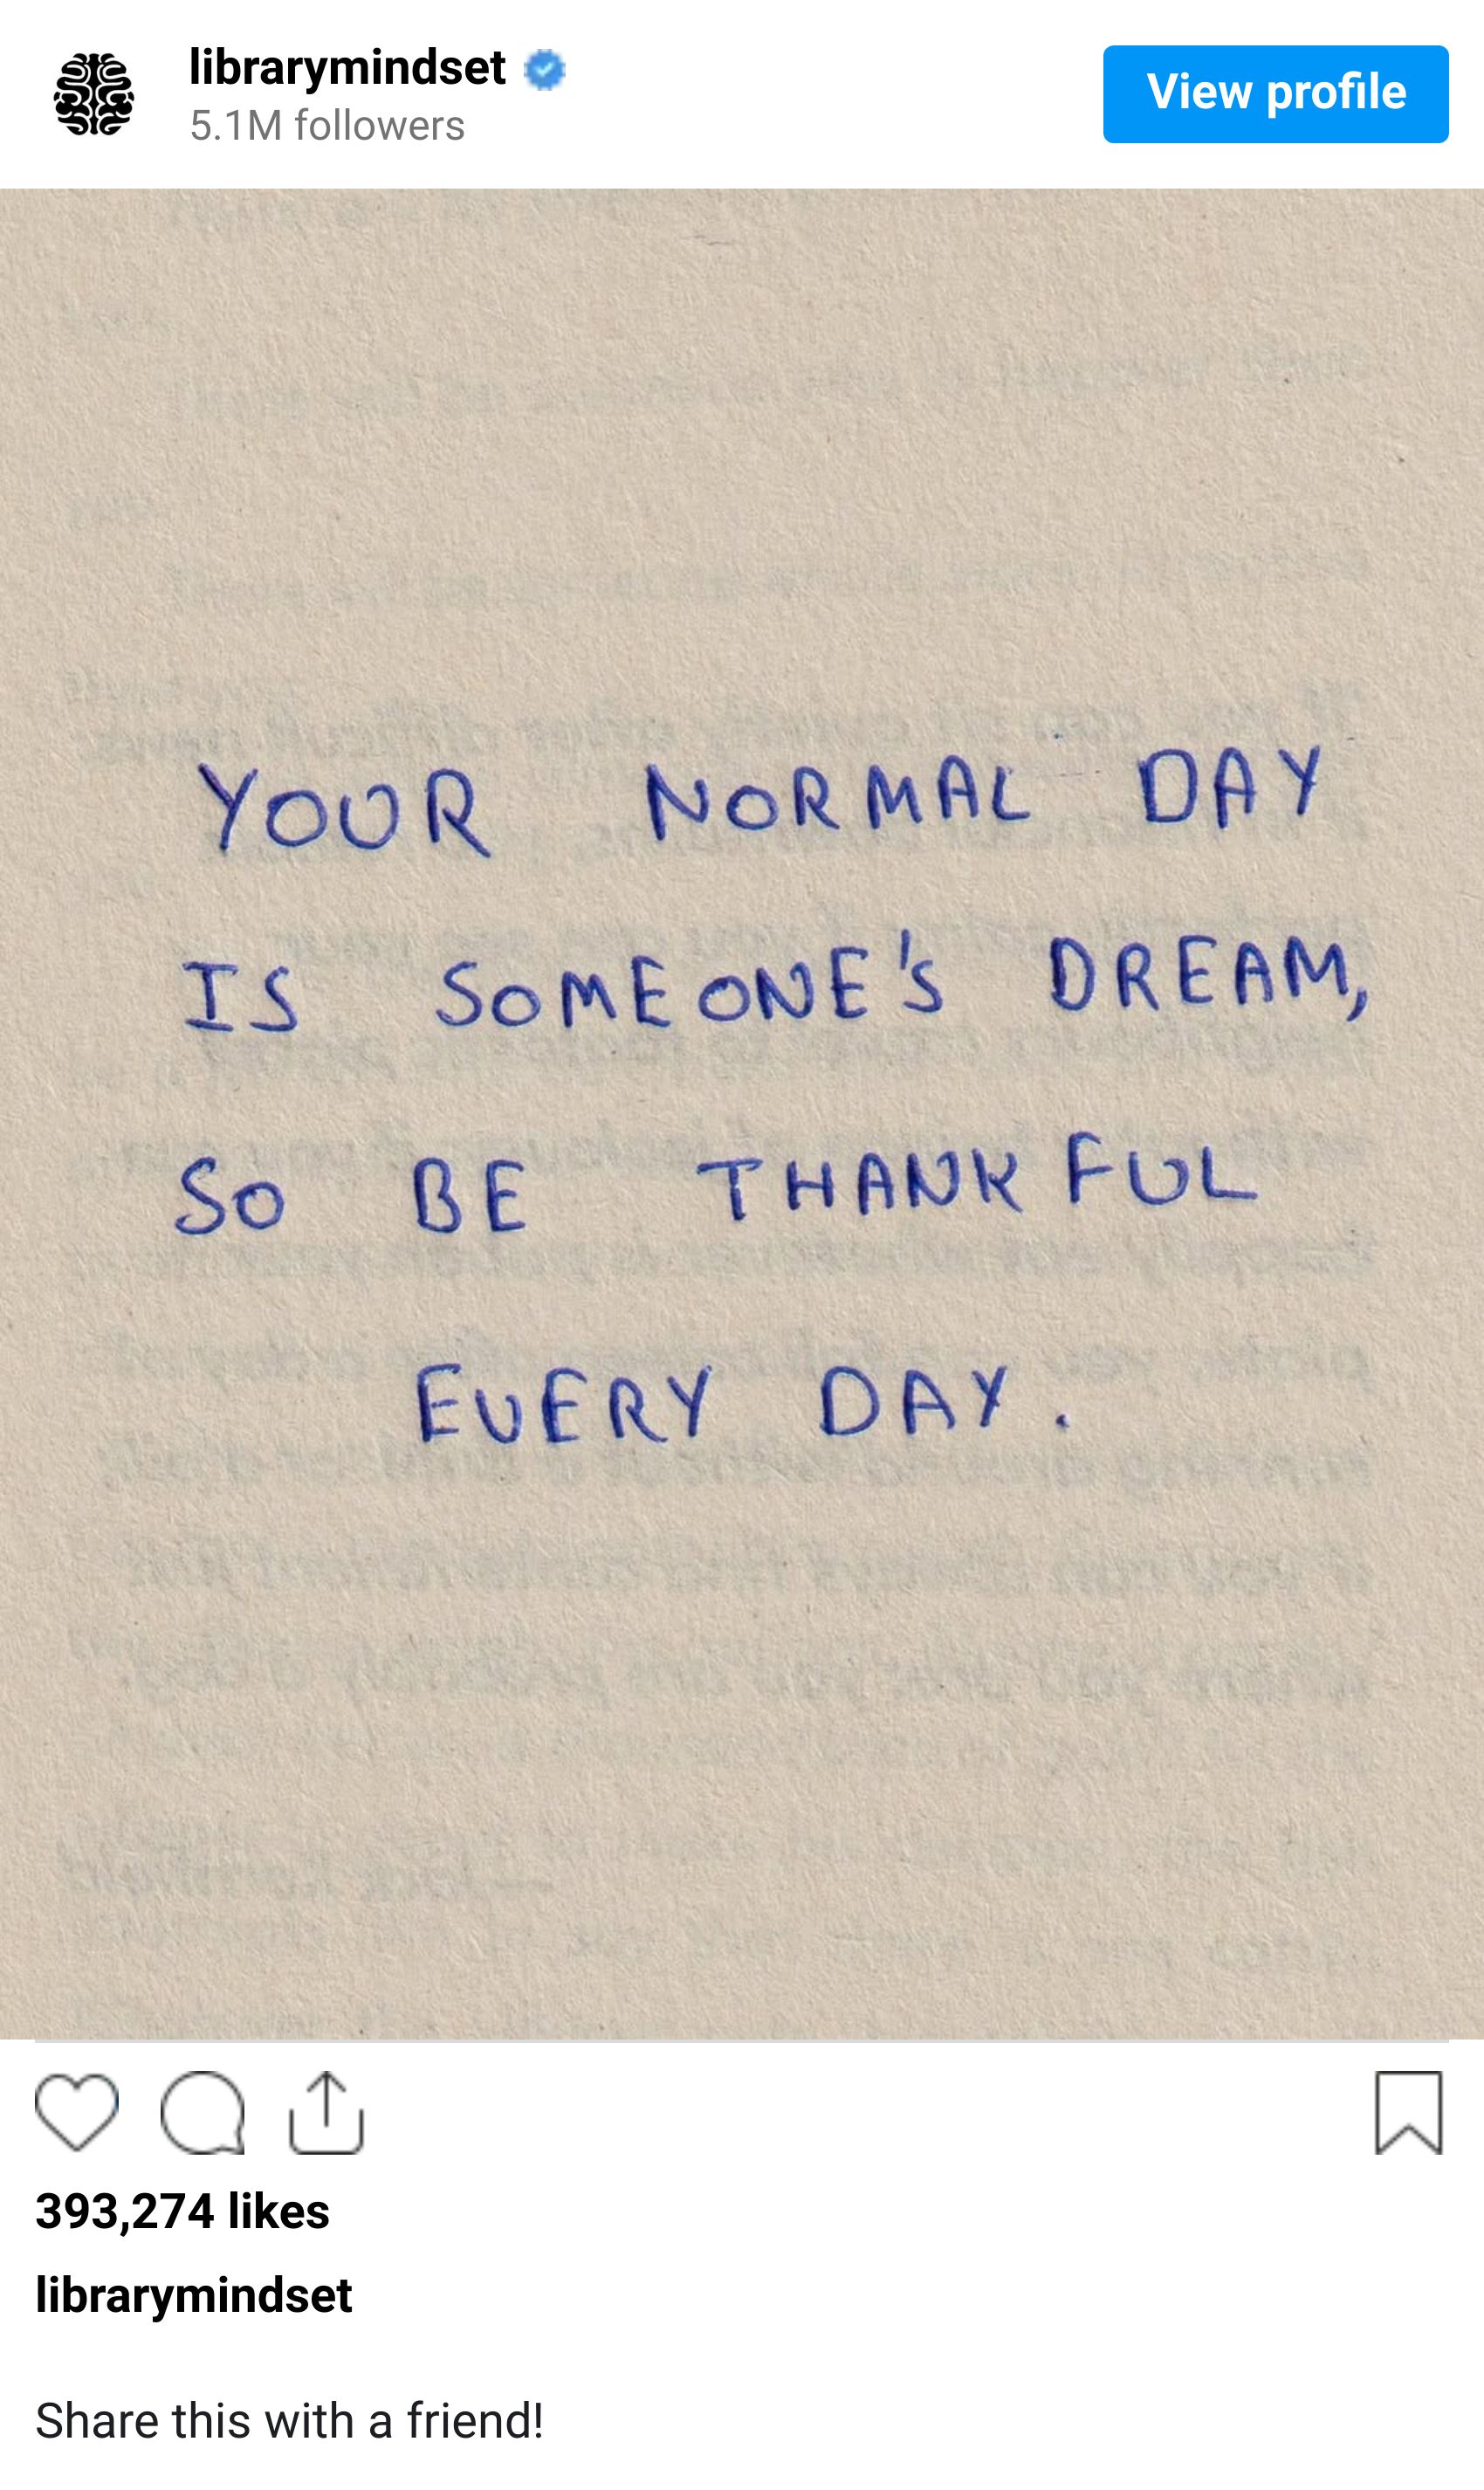 librarymindset
5.1M followers
View profile
YOUR NORMAL DAY
IS SOMEONE'S DREAM,
SO BE THANKFUL
EVERY DAY.
393,274 likes
librarymindset
Share this with a friend!